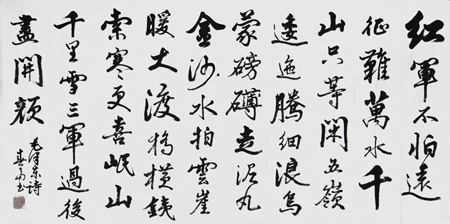 紅軍不怕遠
征難萬水千
山只等閑五嶺
逶迤騰細浪烏
蒙磅礴走泥丸
金沙水拍雲崖
暖大渡橋橫鐵
索寒更喜岷山
千里雪三軍過後
盡開顏
毛澤東詩
書